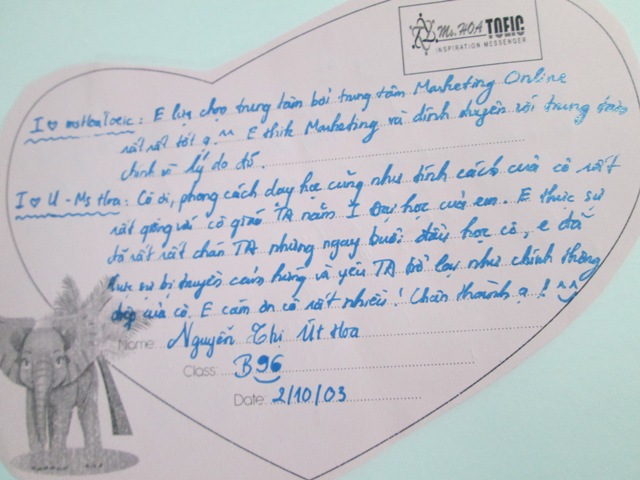 Ms. HOA TOEIC
INSPIRATION MESSENGER
I ♡ mshoaToeic: E lựa chọn trung tâm bởi trung tâm Marketing Online
rất rất tốt ạ. ^^ E thik Marketing và dính duyên với trung tâm
chính vì lý do đó.
I ♡ U - Ms Hoa: Cô ơi, phong cách dạy học cũng như tính cách của cô rất
rất giống với cô giáo TA năm I đại học của em. E thực sự
đã rất rất chán TA nhưng ngay buổi đầu học cô, e đã
thực sự bị truyền cảm hứng và yêu TA trở lại như chính thông
điệp của cô. E cảm ơn cô rất nhiều! Chân thành ạ! ^^
Name: Nguyễn Thị Út Hoa
Class: B96
Date: 2/10/03